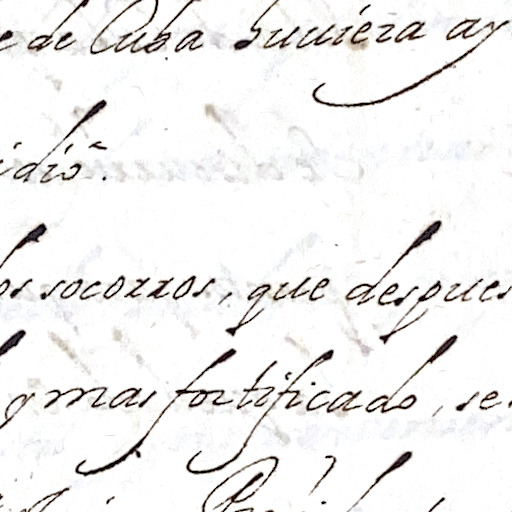 e de Cuba huuiera ay
idió.
os socorros, que despues
y mas fortificado, se